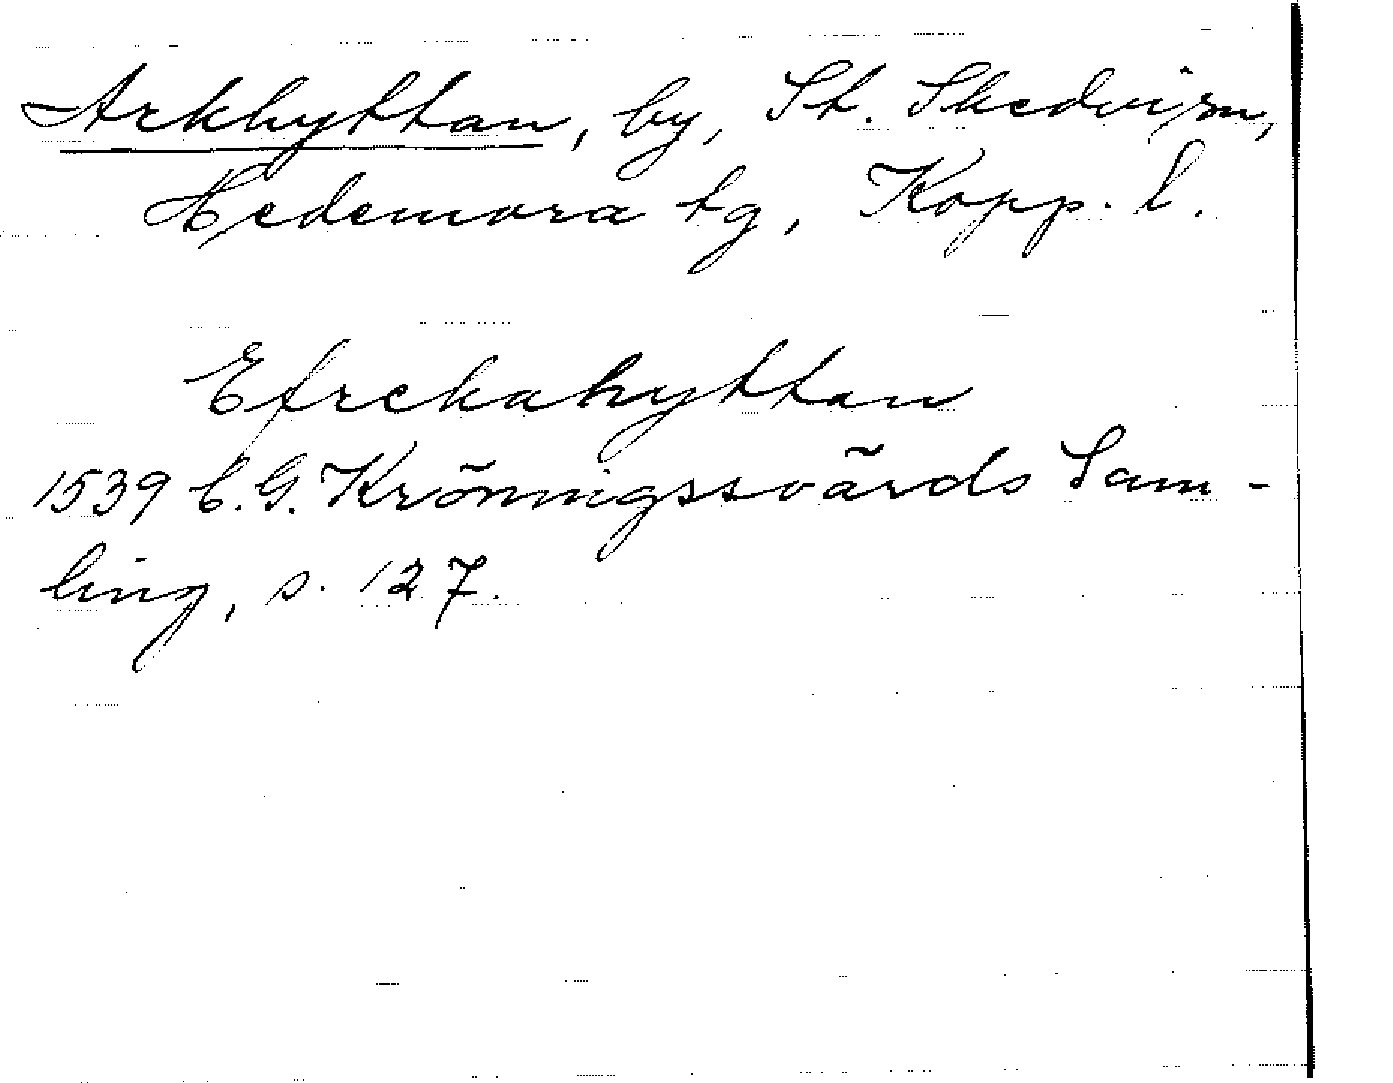 Arkhyttan, by, St. Skedvi sn,
Hedemora tg, Kopp. l.
Efrekahyttan
1539 C.G. Kröningssvärds Sam-
ling, s. 127.